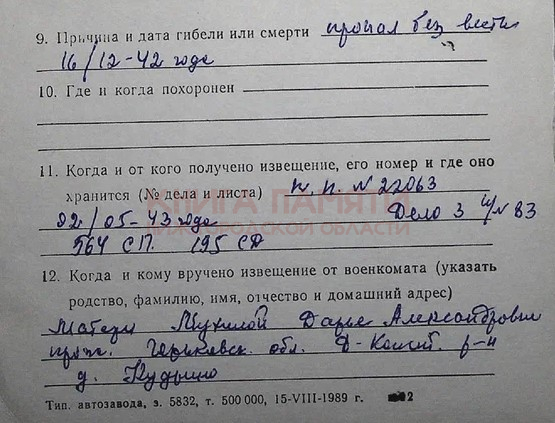 9. Причина и дата гибели или смерти пропал без вести
16/12-42 года
10. Где и когда похоронен
11. Когда и от кого получено извещение, его номер и где оно
хранится (№ дела и листа) п. п. N 22063
КНИГА ПАМЯТИ
22/05-43 года Дело 3 N 83
НИЖЕГОРОДСКОЙ ОБЛАСТИ
564 СП. 195 СД
12. Когда и кому вручено извещение от военкомата (указать
родство, фамилию, имя, отчество и домашний адрес)
Матери Дарье Александровне
прож. Горьковск. обл. Д-Конст. р-н
д. Кудрино
Тип. автозавода, з. 5832, т. 500 000, 15-VIII-1989 г.